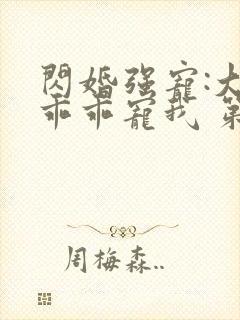 閃婚强寵:大
乖乖寵我 第
周梅森..